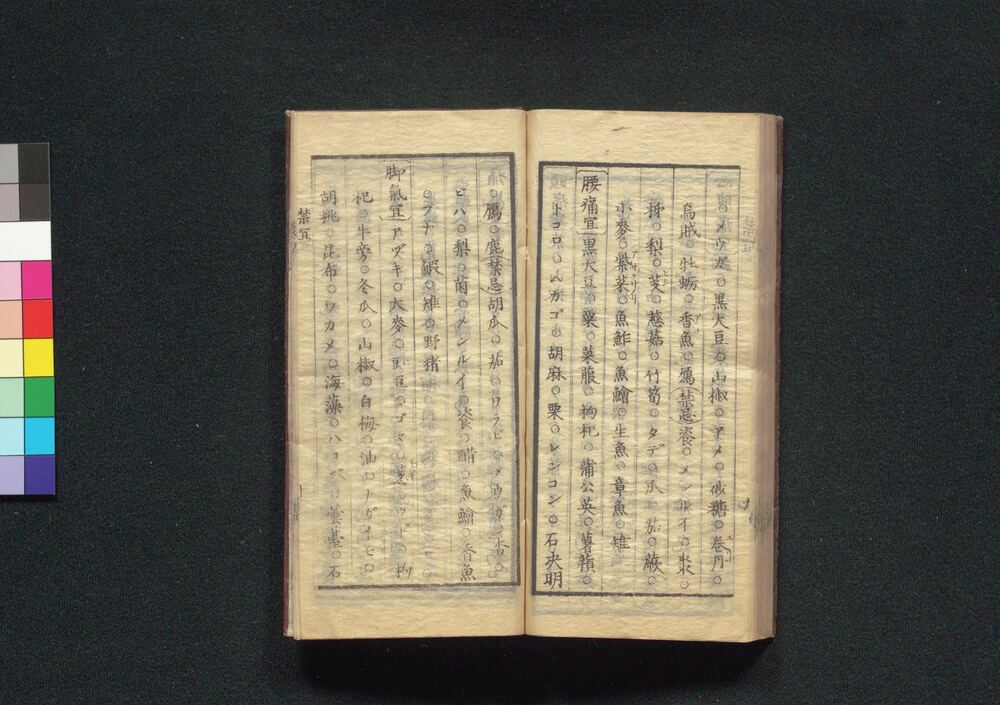 ○メウガ○黒大豆○山椒○アメ○砂糖○巻丹○
烏賊○牡蛎○香魚○鴈禁忌餈○メンルイ○
○梨○芰○慈菇○竹筍○タデ○瓜○茄○蕨○
小麥○紫菜○魚鮓○魚鱠○生魚○章魚○雉
腰痛宜黒大豆○粟○菜菔○枸杞○蒲公英○
トコロ○ムカゴ○胡麻○栗○レンコン○石决明
○鴈○鹿禁忌胡瓜○茄○ワラビ○
ビハ○梨○菌○メンルイ○餈○醋○魚鱠○香魚
○フナ○鰕○雉○野猪
脚氣宜アヅキ○大麥○豇豆○ゴマ○葱○○枸
杞○牛旁○冬瓜○山椒○白梅○油○ナガイモ○
胡桃 昆布○ワカメ○海藻○ハコベ○○石
禁宜